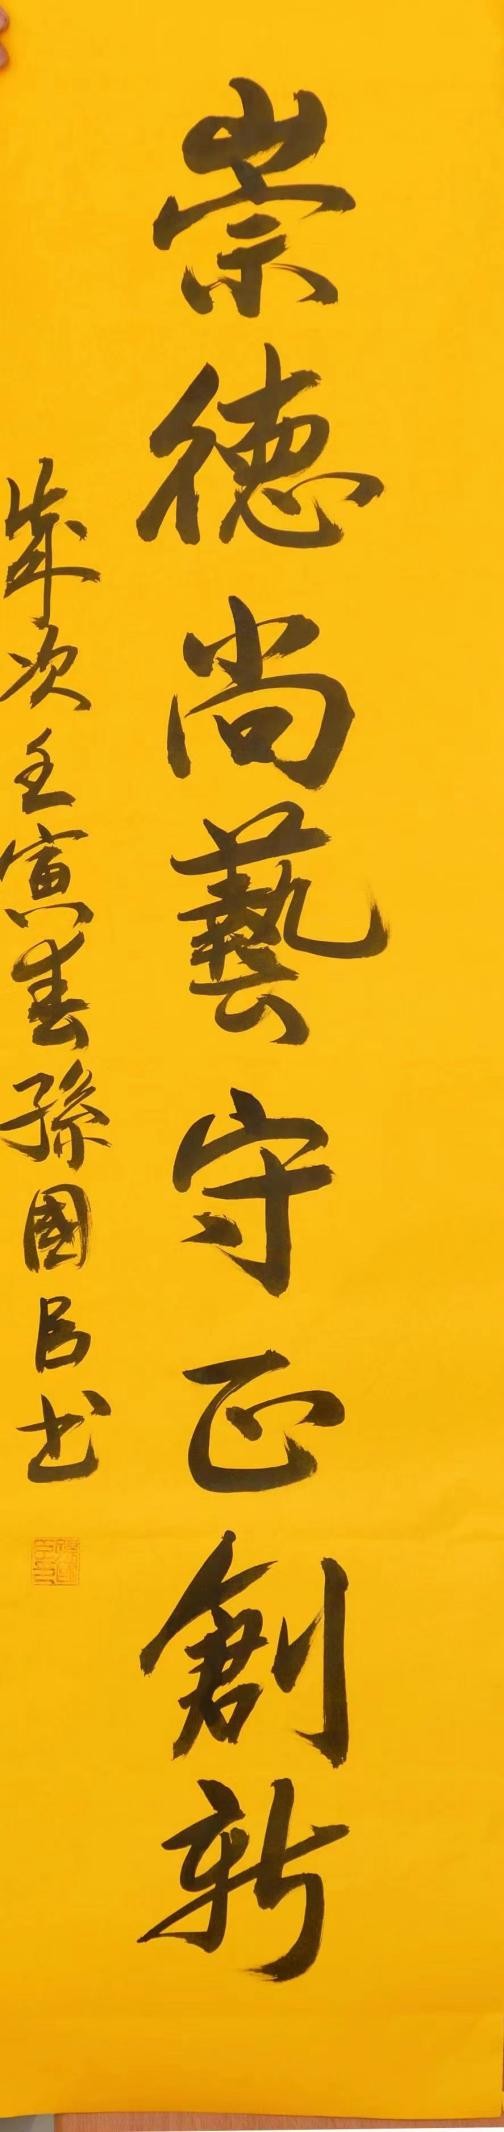 崇德尚藝守正創新
歲次壬寅春孫國呂书